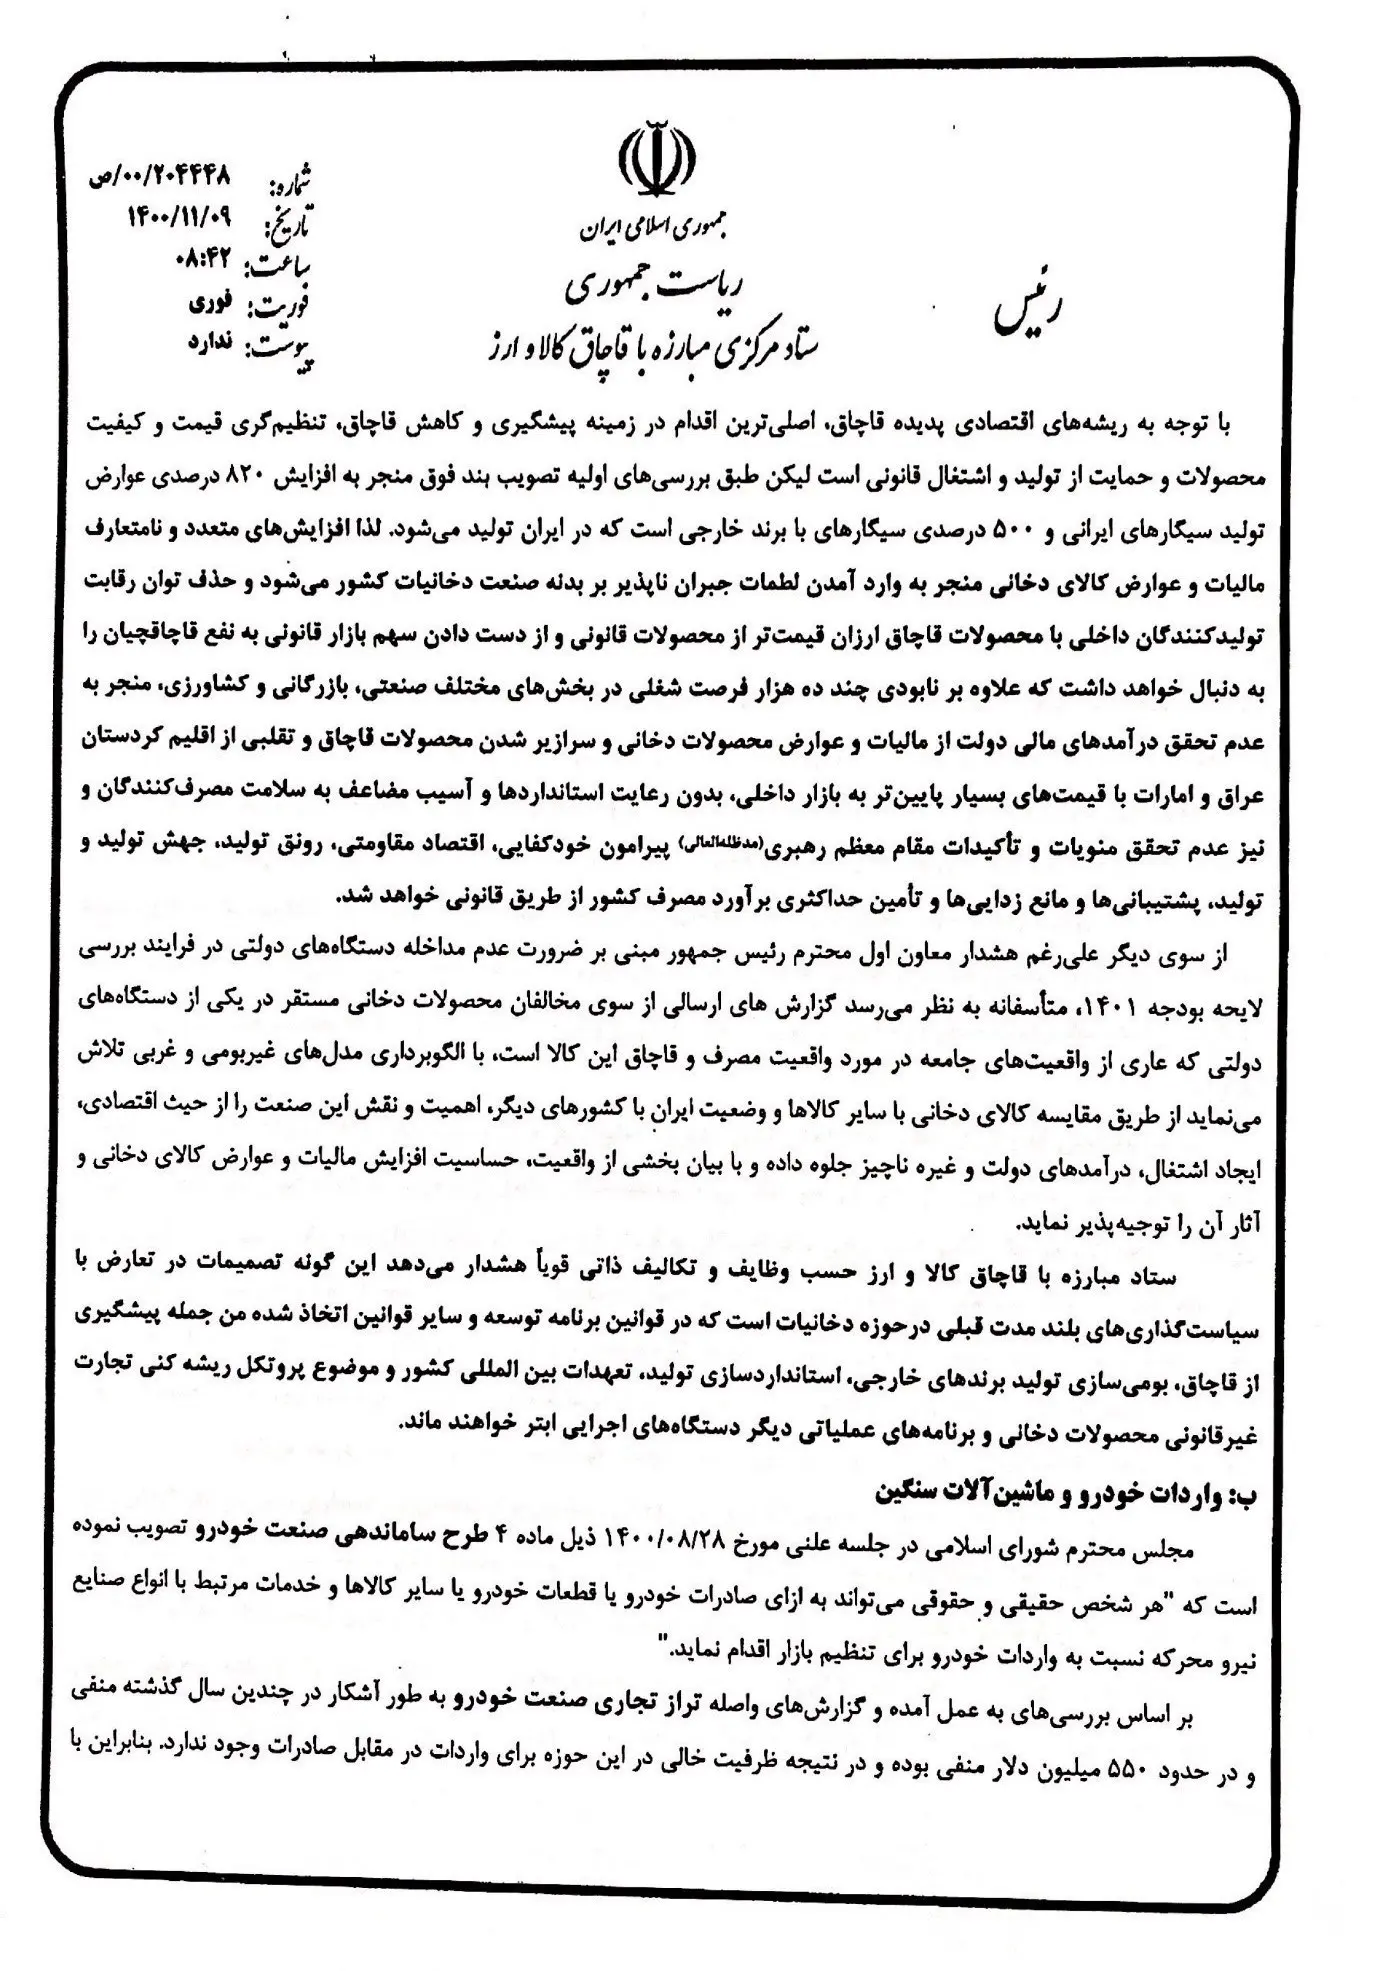 جمهوری اسلامی ایران
ریاست جمهوری
ستاد مرکزی مبارزه با قاچاق کالا و ارز
رئیس
شماره: ۰۰/۲۰۴۴۴۸/ص
تاریخ: ۱۴۰۰/۱۱/۰۹
ساعت: ۰۸:۴۲
فوریت: فوری
پیوست: ندارد
با توجه به ریشه‌های اقتصادی پدیده قاچاق، اصلی‌ترین اقدام در زمینه پیشگیری و کاهش قاچاق، تنظیم‌گری قیمت و کیفیت
محصولات و حمایت از تولید و اشتغال قانونی است لیکن طبق بررسی‌های اولیه تصویب بند فوق منجر به افزایش ۸۲۰ درصدی عوارض
تولید سیگارهای ایرانی و ۵۰۰ درصدی سیگارهای با برند خارجی است که در ایران تولید می‌شود. لذا افزایش‌های متعدد و نامتعارف
مالیات و عوارض کالای دخانی منجر به وارد آمدن لطمات جبران ناپذیر بر بدنه صنعت دخانیات کشور می‌شود و حذف توان رقابت
تولیدکنندگان داخلی با محصولات قاچاق ارزان قیمت‌تر از محصولات قانونی و از دست دادن سهم بازار قانونی به نفع قاچاقچیان را
به دنبال خواهد داشت که علاوه بر نابودی چند ده هزار فرصت شغلی در بخش‌های مختلف صنعتی، بازرگانی و کشاورزی، منجر به
عدم تحقق درآمدهای مالی دولت از مالیات و عوارض محصولات دخانی و سرازیر شدن محصولات قاچاق و تقلبی از اقلیم کردستان
عراق و امارات با قیمت‌های بسیار پایین‌تر به بازار داخلی، بدون رعایت استانداردها و آسیب مضاعف به سلامت مصرف‌کنندگان و
نیز عدم تحقق منویات و تأکیدات مقام معظم رهبری(مدظله‌العالی) پیرامون خودکفایی، اقتصاد مقاومتی، رونق تولید، جهش تولید و
تولید، پشتیبانی‌ها و مانع زدایی‌ها و تأمین حداکثری برآورد مصرف کشور از طریق قانونی خواهد شد.
از سوی دیگر علی‌رغم هشدار معاون اول محترم رئیس جمهور مبنی بر ضرورت عدم مداخله دستگاه‌های دولتی در فرایند بررسی
لایحه بودجه ۱۴۰۱، متأسفانه به نظر می‌رسد گزارش های ارسالی از سوی مخالفان محصولات دخانی مستقر در یکی از دستگاه‌های
دولتی که عاری از واقعیت‌های جامعه در مورد واقعیت مصرف و قاچاق این کالا است، با الگوبرداری مدل‌های غیربومی و غربی تلاش
می‌نماید از طریق مقایسه کالای دخانی با سایر کالاها و وضعیت ایران با کشورهای دیگر، اهمیت و نقش این صنعت را از حیث اقتصادی،
ایجاد اشتغال، درآمدهای دولت و غیره ناچیز جلوه داده و با بیان بخشی از واقعیت، حساسیت افزایش مالیات و عوارض کالای دخانی و
آثار آن را توجیه‌پذیر نماید.
ستاد مبارزه با قاچاق کالا و ارز حسب وظایف و تکالیف ذاتی قویاً هشدار می‌دهد این گونه تصمیمات در تعارض با
سیاست‌گذاری‌های بلند مدت قبلی درحوزه دخانیات است که در قوانین برنامه توسعه و سایر قوانین اتخاذ شده من جمله پیشگیری
از قاچاق، بومی‌سازی تولید برندهای خارجی، استانداردسازی تولید، تعهدات بین المللی کشور و موضوع پروتکل ریشه کنی تجارت
غیرقانونی محصولات دخانی و برنامه‌های عملیاتی دیگر دستگاه‌های اجرایی ابتر خواهند ماند.
ب: واردات خودرو و ماشین‌آلات سنگین
مجلس محترم شورای اسلامی در جلسه علنی مورخ ۱۴۰۰/۰۸/۲۸ ذیل ماده ۴ طرح ساماندهی صنعت خودرو تصویب نموده
است که "هر شخص حقیقی و حقوقی می‌تواند به ازای صادرات خودرو یا قطعات خودرو یا سایر کالاها و خدمات مرتبط با انواع صنایع
نیرو محرکه نسبت به واردات خودرو برای تنظیم بازار اقدام نماید."
بر اساس بررسی‌های به عمل آمده و گزارش‌های واصله تراز تجاری صنعت خودرو به طور آشکار در چندین سال گذشته منفی
و در حدود ۵۵۰ میلیون دلار منفی بوده و در نتیجه ظرفیت خالی در این حوزه برای واردات در مقابل صادرات وجود ندارد. بنابراین با